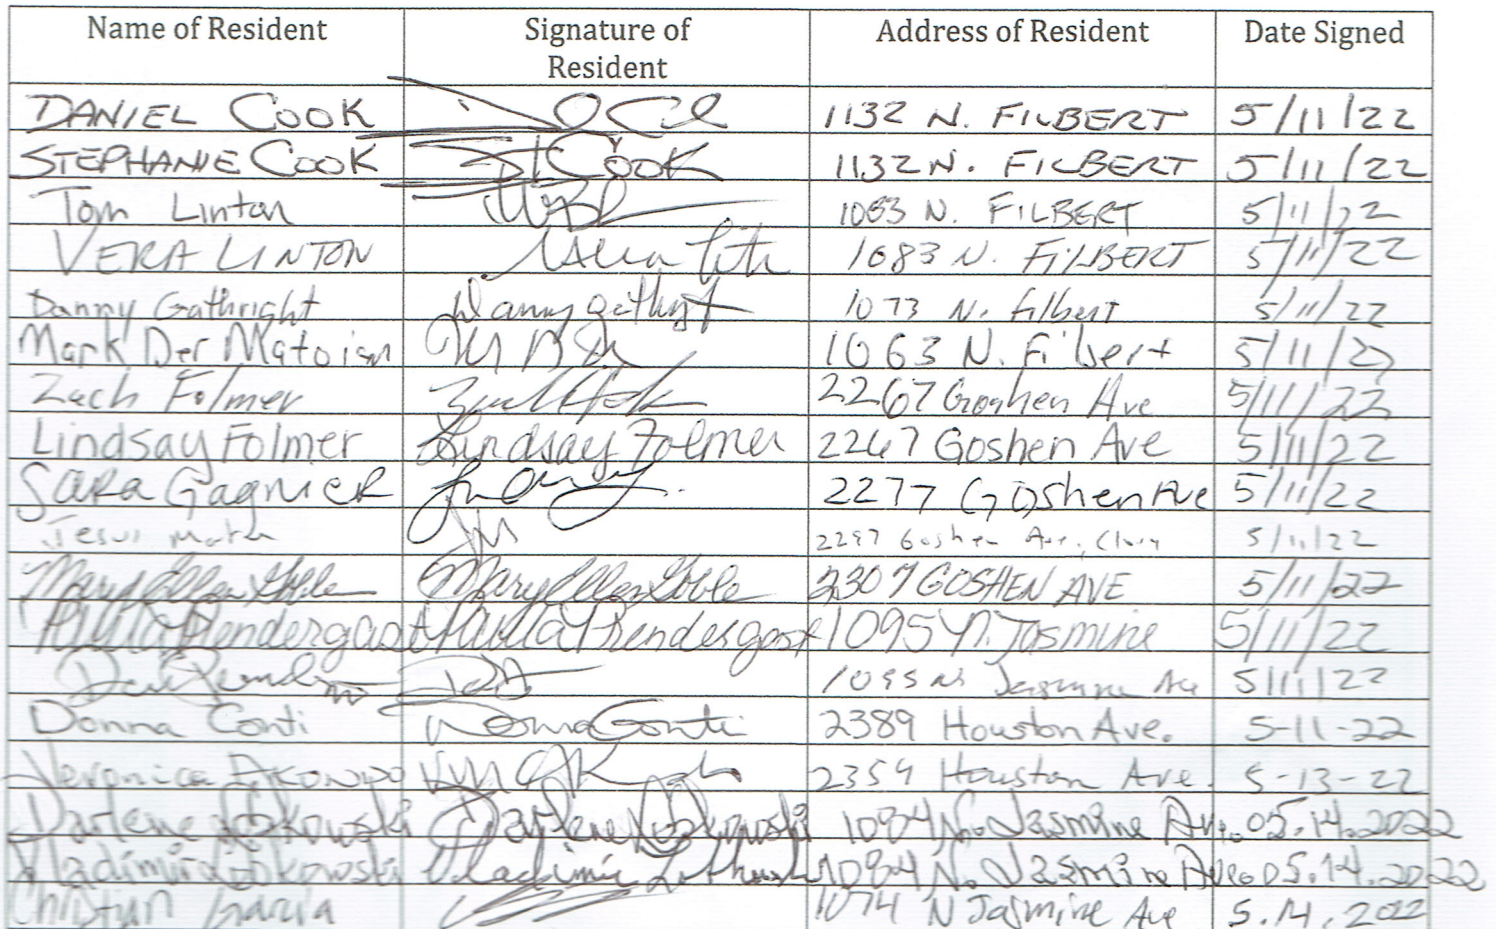 Name of Resident Signature of Resident Address of Resident Date Signed
DANIEL COOK 1132 N. FILBERT 5/11/22
STEPHANIE COOK St Cook 1132 N. FILBERT 5/11/22
Tom Linton 1083 N. FILBERT 5/11/22
VERA LINTON 1083 N. FILBERT 5/11/22
Danny Gathright Danny Gathright 1073 N. Filbert 5/11/22
Mark Der Matoian 1063 N. Filbert 5/11/22
Zach Folmer 2267 Goshen Ave 5/11/22
Lindsay Folmer Lindsay Folmer 2267 Goshen Ave 5/11/22
SARA GAGNIER 2277 Goshen Ave 5/11/22
Jesus 2297 Goshen Ave, 5/11/22
Mary Ellen Goble Mary Ellen Goble 2307 GOSHEN AVE 5/11/22
Paula Prendergast Paula Prendergast 1095 N. Jasmine 5/11/22
1095 N Jasmine Ave 5/11/22
Donna Conti Donna Conti 2389 Houston Ave. 5-11-22
Veronica 2359 Houston Ave. 5-13-22
Darlene Darlene 1084 N. Jasmine Ave. 05.14.2022
Vladimir Vladimir 1084 N. Jasmine Ave. 05.14.2022
Christian Garcia 1074 N Jasmine Ave 5.14.2022